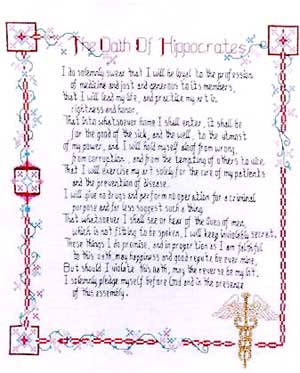 The Oath Of Hippocrates
I do solemnly swear that I will be loyal to the profession
of medicine and just and generous to its members,
that I will lead my life, and practice my art in
rightness and honor,
That into whatsoever home I shall enter, it shall be
for the good of the sick, and the well, to the utmost
of my power, and I will hold myself aloof from wrong,
from corruption, and from the tempting of others to vice.
That I will exercise my art solely for the cure of my patients
and the prevention of disease.
I will give no drugs and perform no operation for a criminal
purpose and far less suggest such a thing.
That whatsoever I shall see or hear of the lives of men,
which is not fitting to be spoken, I will keep inviolably secret.
These things I do promise, and in proportion as I am faithful
to this oath, may happiness and good repute be ever mine,
But should I violate this oath, may the reverse be my lot.
I solemnly pledge myself before God and in the presence
of this assembly.